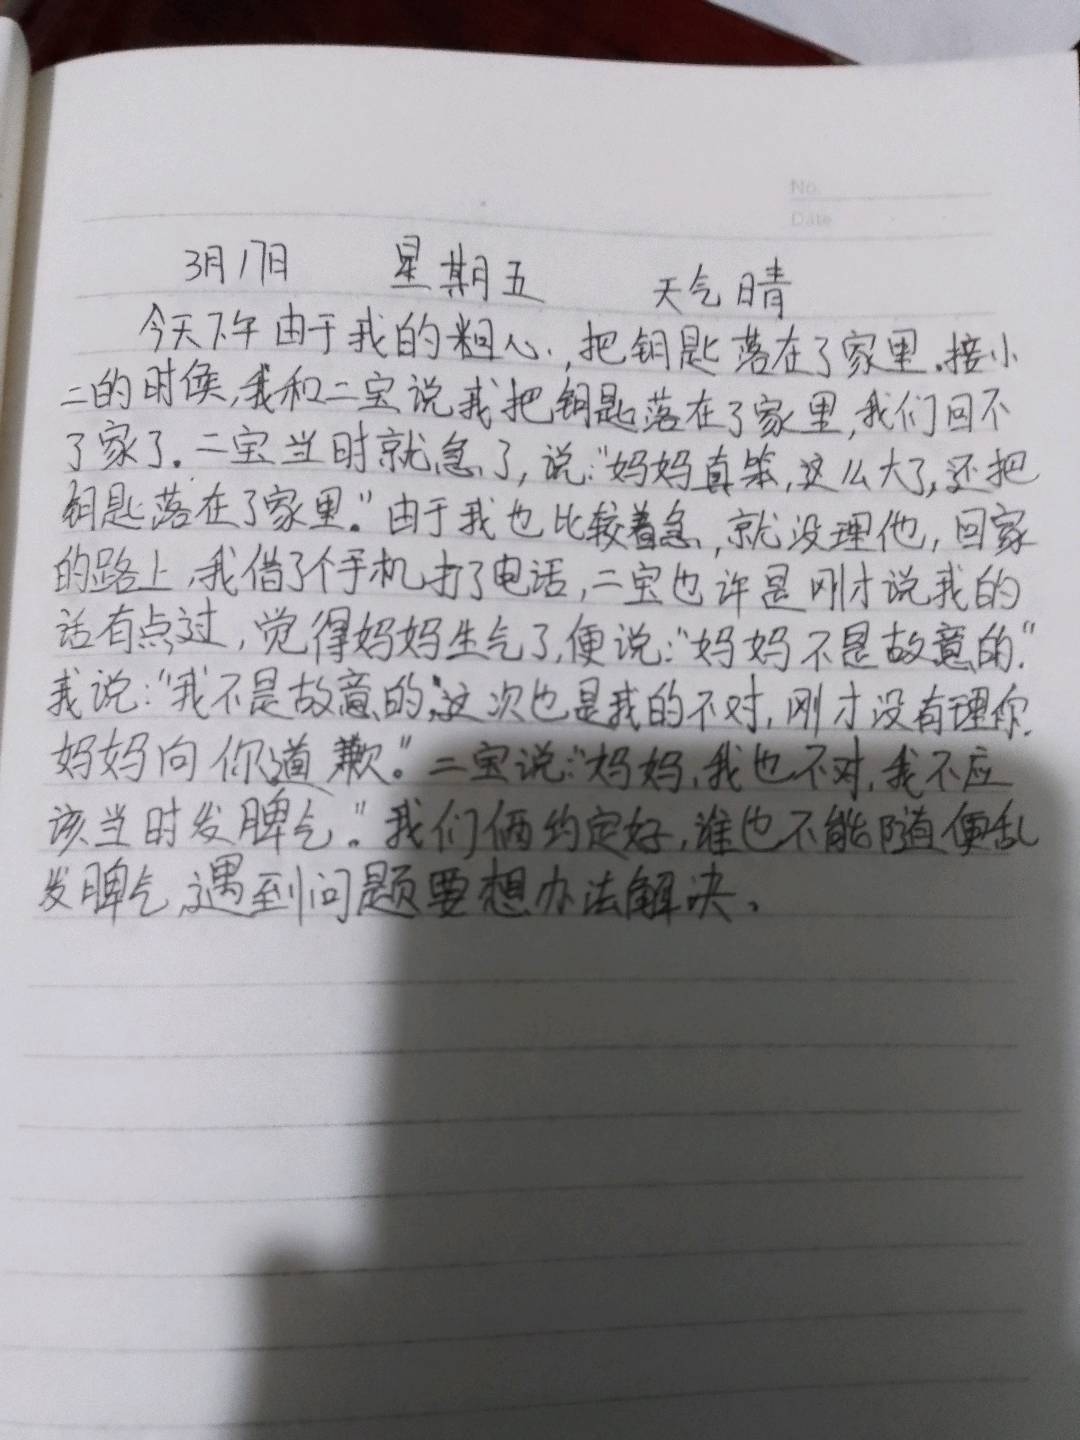 No.
Date
3月17日 星期五 天气晴
今天下午由于我的粗心，把钥匙落在了家里。接小
二的时候，我和二宝说我把钥匙落在了家里，我们回不
了家了。二宝当时就急了，说：“妈妈真笨，这么大了，还把
钥匙落在了家里。”由于我也比较着急，就没理他，回家
的路上，我借了个手机打了电话，二宝也许是刚才说我的
话有点过，觉得妈妈生气了，便说：“妈妈不是故意的．”
我说：“我不是故意的，这次也是我的不对，刚才没有理你．
妈妈向你道歉。”二宝说：“妈妈，我也不对，我不应
该当时发脾气。”我们俩约定好，谁也不能随便乱
发脾气，遇到问题要想办法解决。